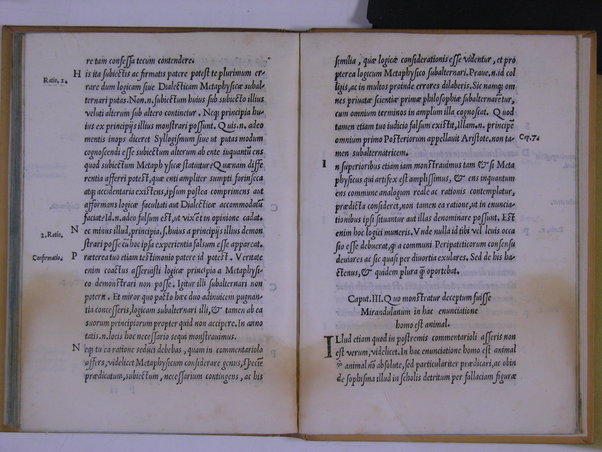 re tam confessa tecum contendere.
Ratio. 1.
His ita subiectis ac firmatis patere potest te plurimum er-
rare dum logicam siue Dialecticam Metaphysicæ subal-
ternari putas. Non.n. subiectum huius sub subiecto illius
veluti alterum sub altero continetur. Neq; principia hu-
ius ex principijs illius monstrari possunt. Quis.n. adeo
mentis inops diceret Syllogismum siue ut putas modum
cognoscendi esse subiectum alterum ab ente inquantū ens
quod subiectum Metaphysicæ statuitur? Quænam diffe-
rentia afferri potest, quæ enti ampliter sumpti forinseca
atq; accidentaria existens, ipsum postea comprimens aut
afformans logicæ facultati aut Dialecticæ accommodatū
faciat? Id.n. adeo falsum est, ut vix et in opinione cadat.
2. Ratio.
Nec minus illud, principia, s. huius a principijs illius demon
strari posse cū hoc ipsa experientia falsum esse appareat.
Confirmatio.
Præterea tuo etiam testimonio patere id potest. Veritate
enim coactus asseruisti logicæ principia a Metaphysi-
co demonstrari non posse. Igitur illi subalternari non
poterit. Et miror quo pacto hæc duo adinuicem pugnan-
tia concesseris, logicam subalternari illi, & tamen ab ea
suorum principiorum propter quid non accipere. In anno
tatis.n. locis hoc necessario sequi monstrauimus.
Neq; tu ea ratione seduci debebas, quam in commentariolo
affers, videlicet Metaphysicum considerare genus, speciē
prædicatum, subiectum, necessarium contingens, ac his
similia, quæ logicæ considerationis esse videntur, et pro
pterea logicum Metaphysico subalternari. Praue.n. id col
ligis, ac in multos proinde errores dilaberis. Sic namq; om
nes priuatæ scientiæ primæ philosophiæ subalternarētur,
cum omnium terminos in amplum illa cognoscat. Quod
tamen etiam tuo iudicio falsum existit, Illam.n. principē
omnium primo Posteriorum appellauit Aristote. non ta-
Cap. 7.
men subalternatricem.
In superioribus etiam iam monstrauimus tam & si Meta
physicus qui artifex est amplissimus, & ens inquantum
ens commune analogum reale ac rationis contemplatur,
prædicta consideret, non tamen ea ratione, ut in enuncia-
tionibus ipsi situantur aut illas denominare possunt. Est
enim hoc logici muneris. Vnde nulla id tibi vel leuis occa
sio esse debuerat, q; a communi Peripateticorum consensu
deuiares ac sic quasi per diuortia exulares. Sed de his ha-
ctenus, & quidem plura q̃ oportebat.
Caput. III. Quo monstratur deceptum fuisse
Mirandulanum in hac enunciatione
homo est animal.
Illud etiam quod in postremis commentarioli asseris non
est verum, videlicet. In hac enunciatione homo est animal
animal nō absolute, sed particulariter prædicari, ac obin
de sophisma illud in scholis detritum per fallaciam figuræ